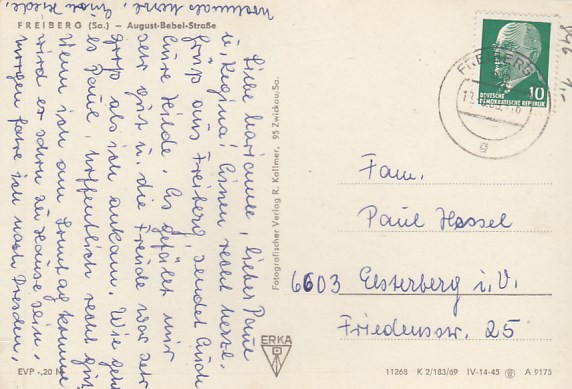 FREIBERG (Sa.) — August-Bebel-Straße
Liebe Marianne, lieber Paul
u. Regina! Einen recht herzl.
Gruß aus Freiberg, sendet Euch
Eure Hilde. Es gefällt mir
sehr gut u. die Freude war sehr
groß als ich ankam. Wie geht
es Paul, hoffentlich recht gut.
Wenn ich am Sonntag komme
wird er schon zu Hause sein.
morgen fahre ich nach Dresden,
nochmals herzl.
Fotografischer Verlag R. Kallmer, 95 Zwickau/Sa.
FREIBERG
g
10
DEUTSCHE
DEMOKRATISCHE REPUBLIK
1,-
Fam.
Paul Hessel
6603 Elsterberg i. V.
Friedensstr. 25
ERKA
EVP -,20
11268 K 2/183/69 IV-14-45 A 9175